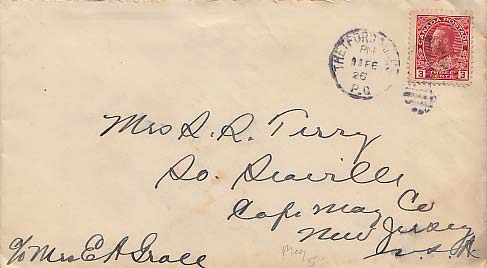 CANADA POSTAGE
3 THREE CENTS 3
THETFORD MINES
PM
11 FE
26
P.Q
Mrs S. R. Terry
So. Seaville
Cape May Co
New Jersey
U.S.A.
c/o Mrs E A Grace